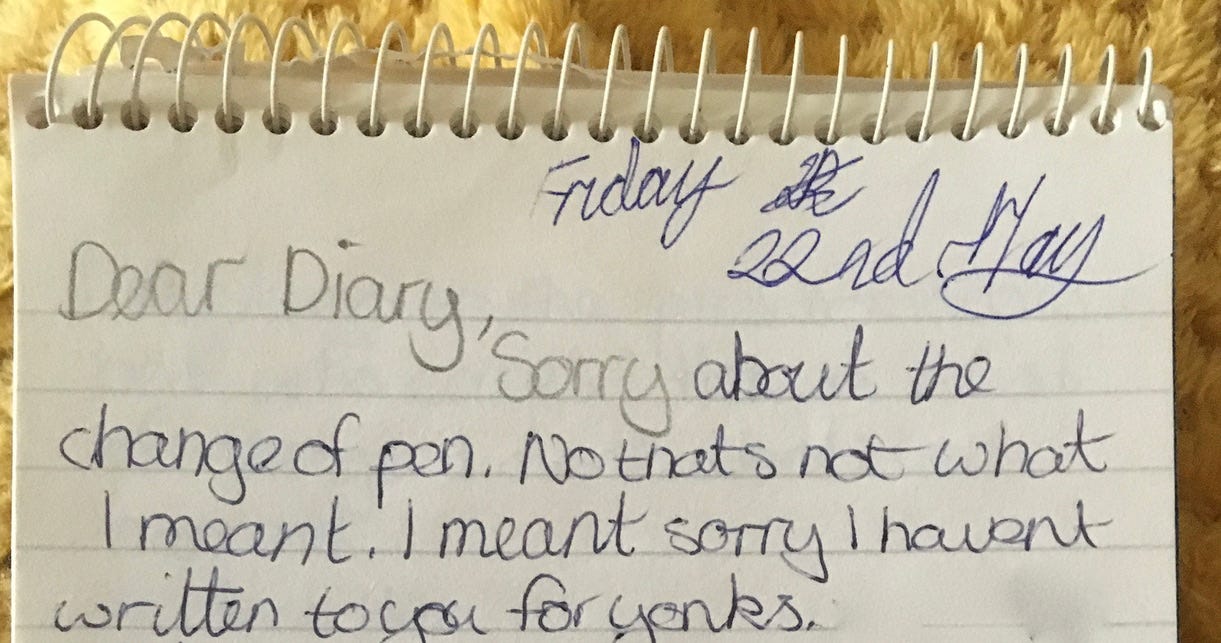 Friday
22nd May
Dear Diary,
Sorry about the
change of pen. No thats not what
I meant. I meant sorry I havent
written to you for yonks.